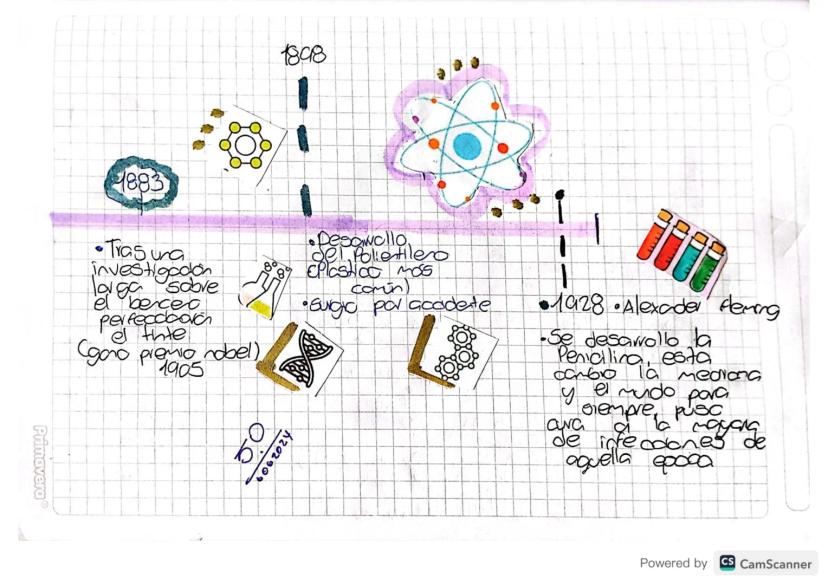 1898
1883
• Tras una
investigación
larga sobre
el benceno
perfeccionaron
el tinte
(gano premio nobel)
1905
• Desarrollo
del Polientilero
(Plastico mas
común)
• Surgio por accidente
• 1928 • Alexader fleming
• Se desarrollo la
Penicilina, esta
cambio la medicina
y el mundo para
siempre, puso
cura a la mayoria
de infecciones de
aquella epoca
5.0
6062024
Primavera
Powered by CS CamScanner